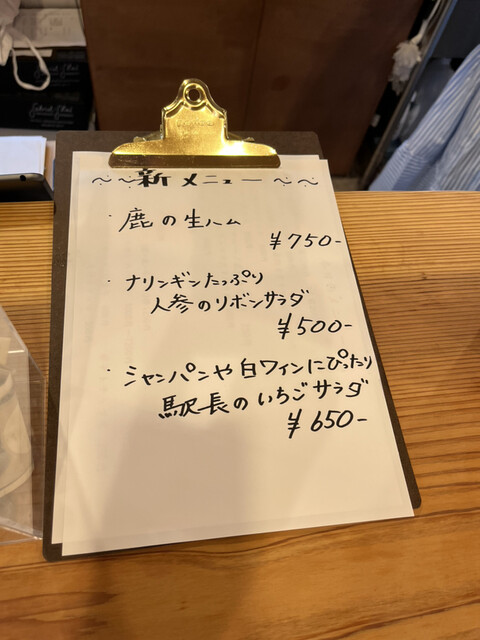 ～～新メニュー～～
・鹿の生ハム
¥750-
・ナリンギンたっぷり
人参のリボンサラダ
¥500-
・シャンパンや白ワインにぴったり
駅長のいちごサラダ
¥650-